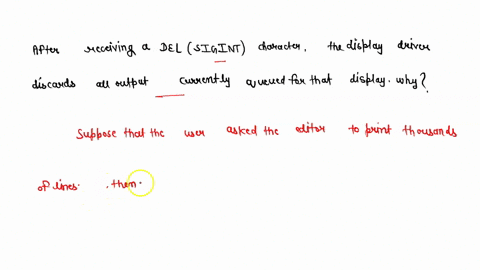 After receiving a DEL (SIGINT) character, the display driver
discards all output currently queued for that display. why?
Suppose that the user asked the editor to print thousands
of lines. , then.